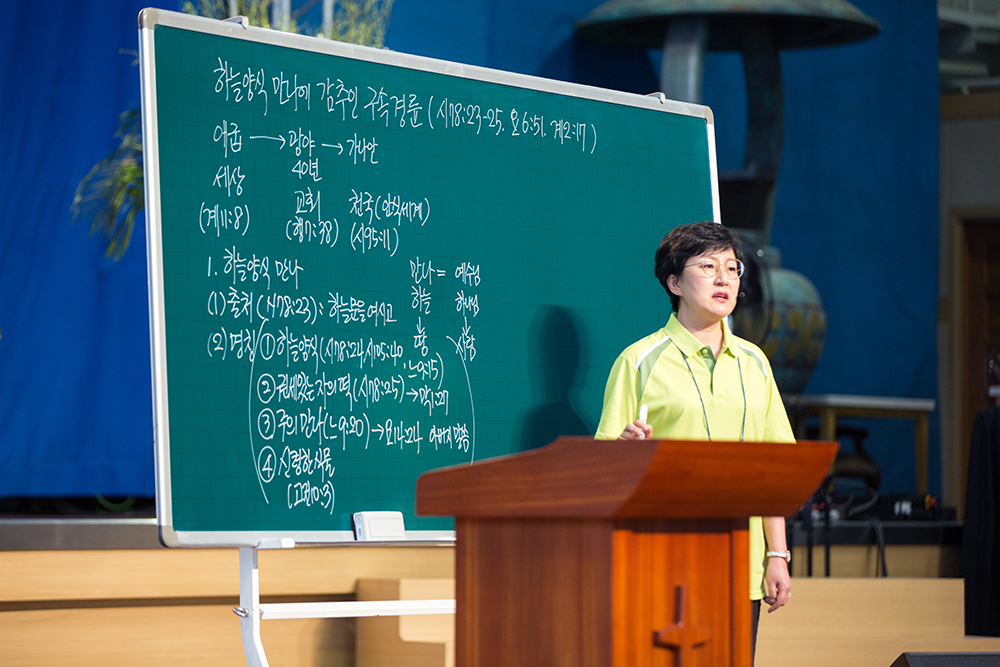 하늘양식 만나에 감추인 구속경륜 (시78:23-25, 요6:51, 계2:17)
애굽 → 광야 → 가나안
40년
세상 교회 천국(안식세계)
(계11:8) (행7:38) (시95:11)
1. 하늘양식 만나 만나 = 예수님
(1) 출처 (시78:23): 하늘문을 여시고 하늘 하나님
(2) 명칭 ① 하늘양식(시78:24, 시105:40, 느9:15) 땅 사람
② 권세있는 자의 떡 (시78:25) → 막1:27
③ 주의 만나(느9:20) → 요14:24 아버지 말씀
④ 신령한 식물
(고전10:3)